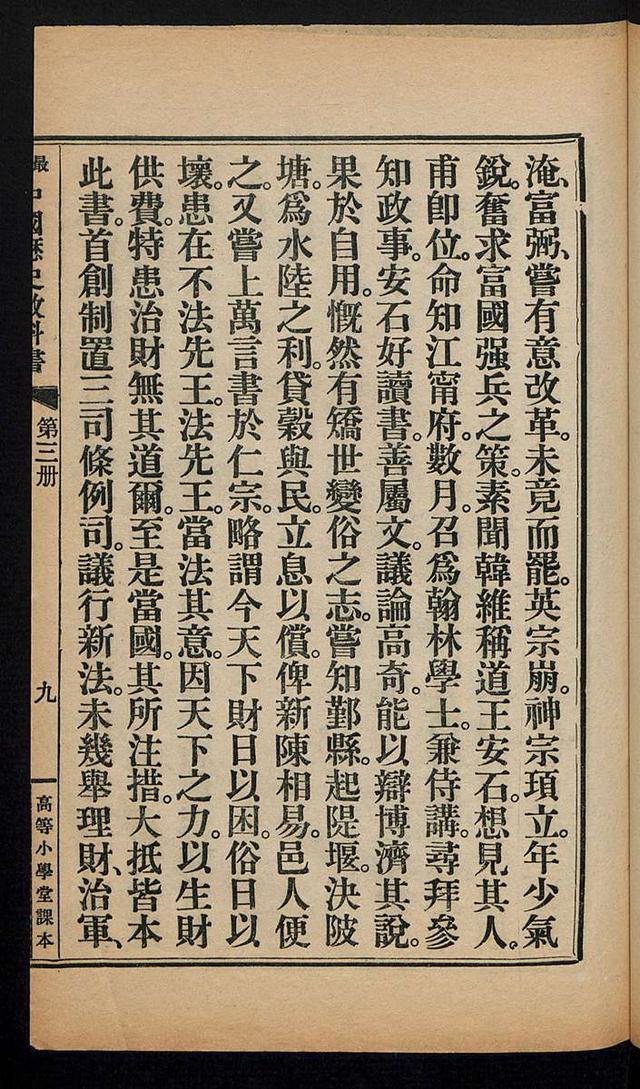 淹、富弼、嘗有意改革。未竟而罷。英宗崩。神宗頊立。年少氣
銳。奮求富國强兵之策。素聞韓維稱道王安石。想見其人。
甫卽位。命知江甯府。數月。召爲翰林學士。兼侍講。尋拜參
知政事。安石好讀書。善屬文。議論高奇。能以辯博濟其說。
果於自用。慨然有矯世變俗之志。嘗知鄞縣。起隄堰。決陂
塘。爲水陸之利。貸穀與民。立息以償。俾新陳相易。邑人便
之。又嘗上萬言書於仁宗。略謂今天下財日以困。俗日以
壞。患在不法先王。法先王。當法其意。因天下之力。以生財
供費。特患治財無其道爾。至是當國。其所注措。大抵皆本
此書。首創制置三司條例司。議行新法。未幾舉理財、治軍、
最 中國歷史教科書 第三册 九 高等小學堂課本